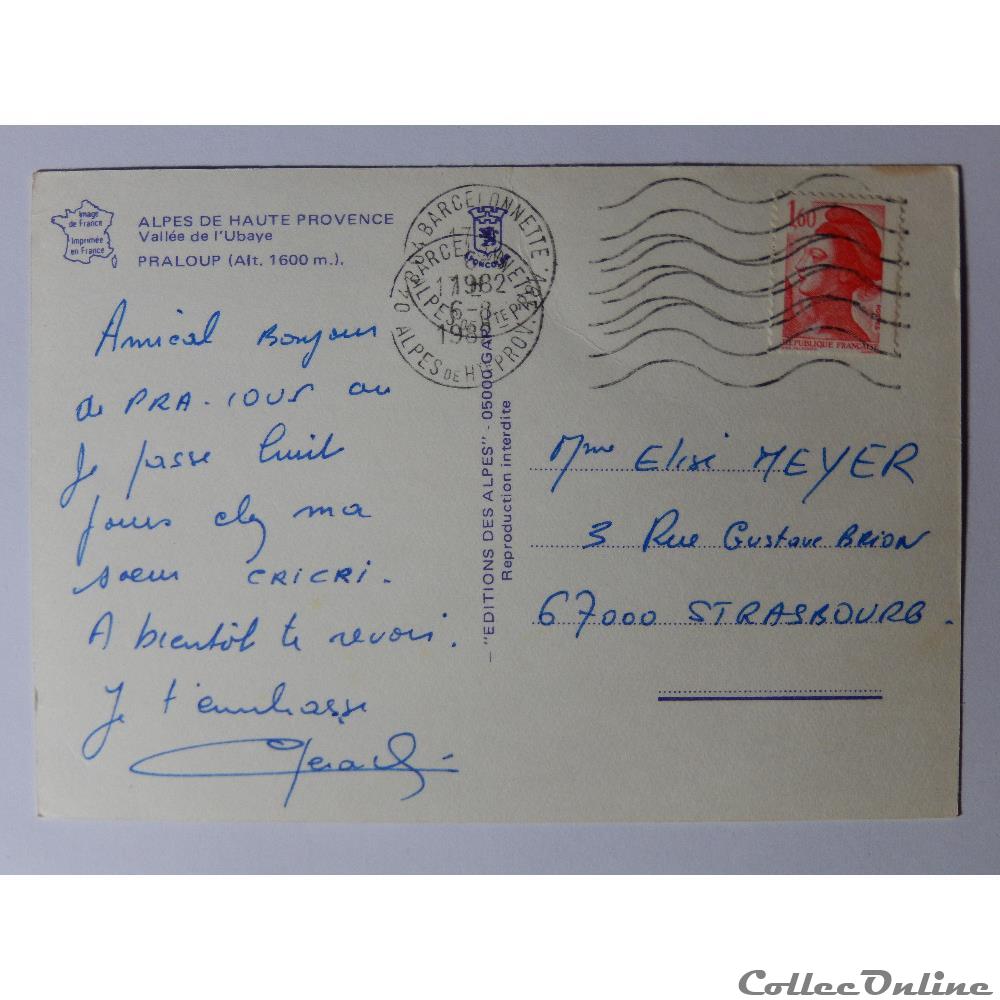 Image
de France
Imprimée
en France
ALPES DE HAUTE PROVENCE
Vallée de l'Ubaye
PRALOUP (Alt. 1600 m.).
Amical Bonjour
de PRA-LOUS ou
Je passe huit
jours chez ma
soeur CRICRI.
A bientôt te revoir.
Je t'embrasse
BARCELONNETTE
17 H
6-8
1982
ALPES DE HTE PROV.
"EDITIONS DES ALPES" - 05000 GAP
Reproduction interdite
1,60
REPUBLIQUE FRANÇAISE
Mme Elise MEYER
3 Rue Gustave BRION
67000 STRASBOURG.
CollecOnline